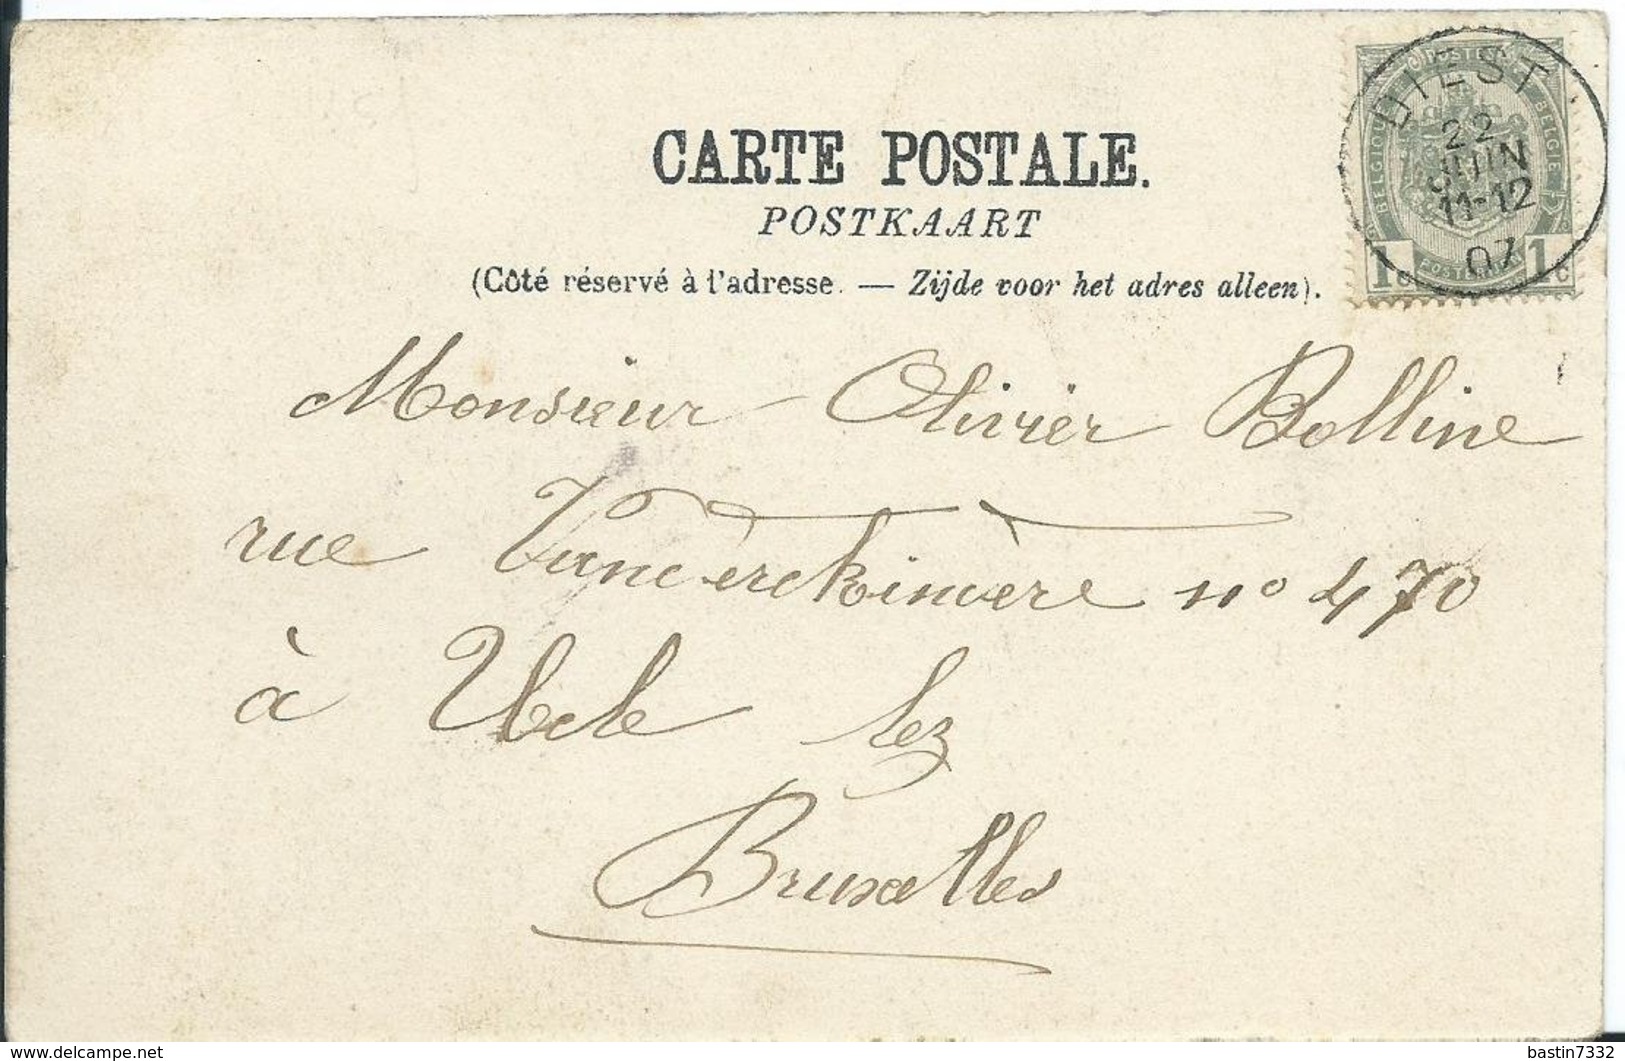 CARTE POSTALE.
POSTKAART
(Côté réservé à l'adresse. — Zijde voor het adres alleen).
DIEST
22
JUIN
11-12
07
POSTES
BELGIQUE
BELGIE
1c 1c
Monsieur Olivier Bolline
rue Vanderkindere no 470
à Uccle lez
Bruxelles
bastin7332